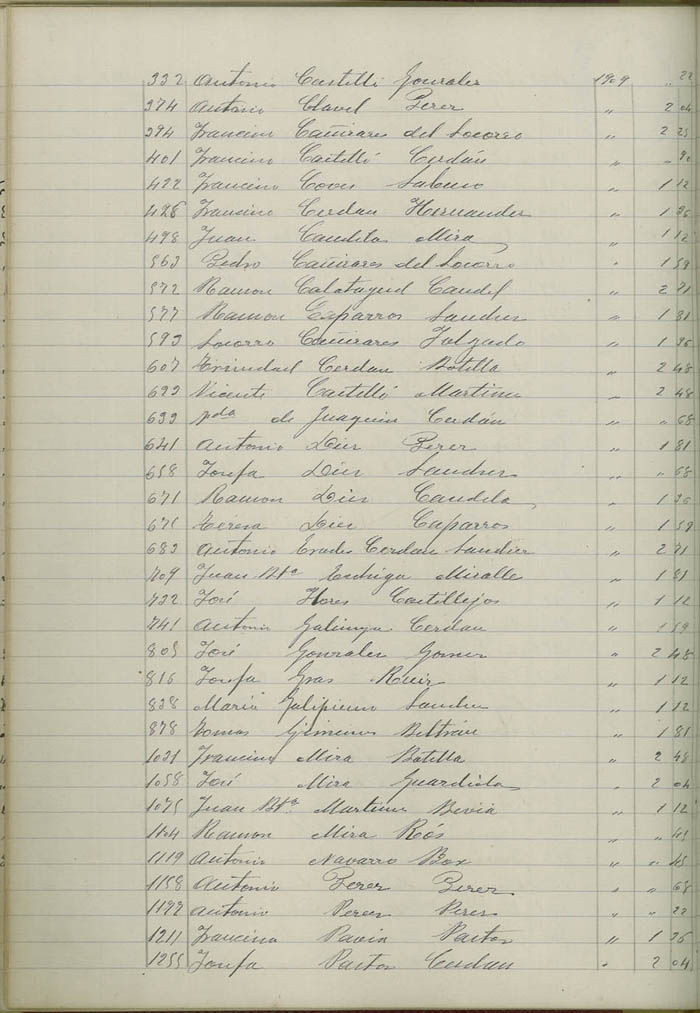 332 Antonio Castelló Gonzales 1909 " 22
374 Antonio Clavel Perez " 2 04
394 Francisco Cañizares del Socorro " 2 25
401 Francisco Castelló Cerdán " " 90
422 Francisco Coves Sabuco " 1 12
428 Francisco Cerdan Hernandez " 1 36
498 Juan Candela Mira " 1 12
563 Pedro Cañizares del Socorro " 1 59
572 Ramon Calatayud Candel " 2 71
577 Ramon Caparros Sanchez " 1 81
593 Socorro Cañizares Salgado " 1 36
607 Trinidad Cerdan Botella " 2 48
623 Vicente Castelló Martinez " 2 48
633 Vda de Juaquin Cerdán " " 68
641 Antonio Dies Perez " 1 81
658 Josefa Dies Sanchez " " 68
671 Ramon Dies Candela " 1 36
675 Teresa Dies Caparros " 1 59
683 Antonio Cerdan Sanchez " 2 71
709 Juan Bta Miralle " 1 81
732 José Flores Castillejos " 1 12
741 Antonio Galinya Cerdan " 1 59
805 José Gonzales Gomez " 2 48
816 Josefa Gras Ruiz " 1 12
838 Maria Galipienso Sanchez " 1 12
878 Tomas Gimenes Beltrán " 1 81
1031 Francisco Mira Botella " 2 48
1058 José Mira Guardiola " 2 04
1075 Juan Bta Martinez Bevia " 1 12
1104 Ramon Mira Rós " " 45
1119 Antonio Navarro Box " " 45
1158 Antonio Perez Perez " " 68
1192 Antonio Peres Peres " " 22
1211 Francisca Pavia Pastor " 1 36
1255 Josefa Pastor Cerdan " 2 04